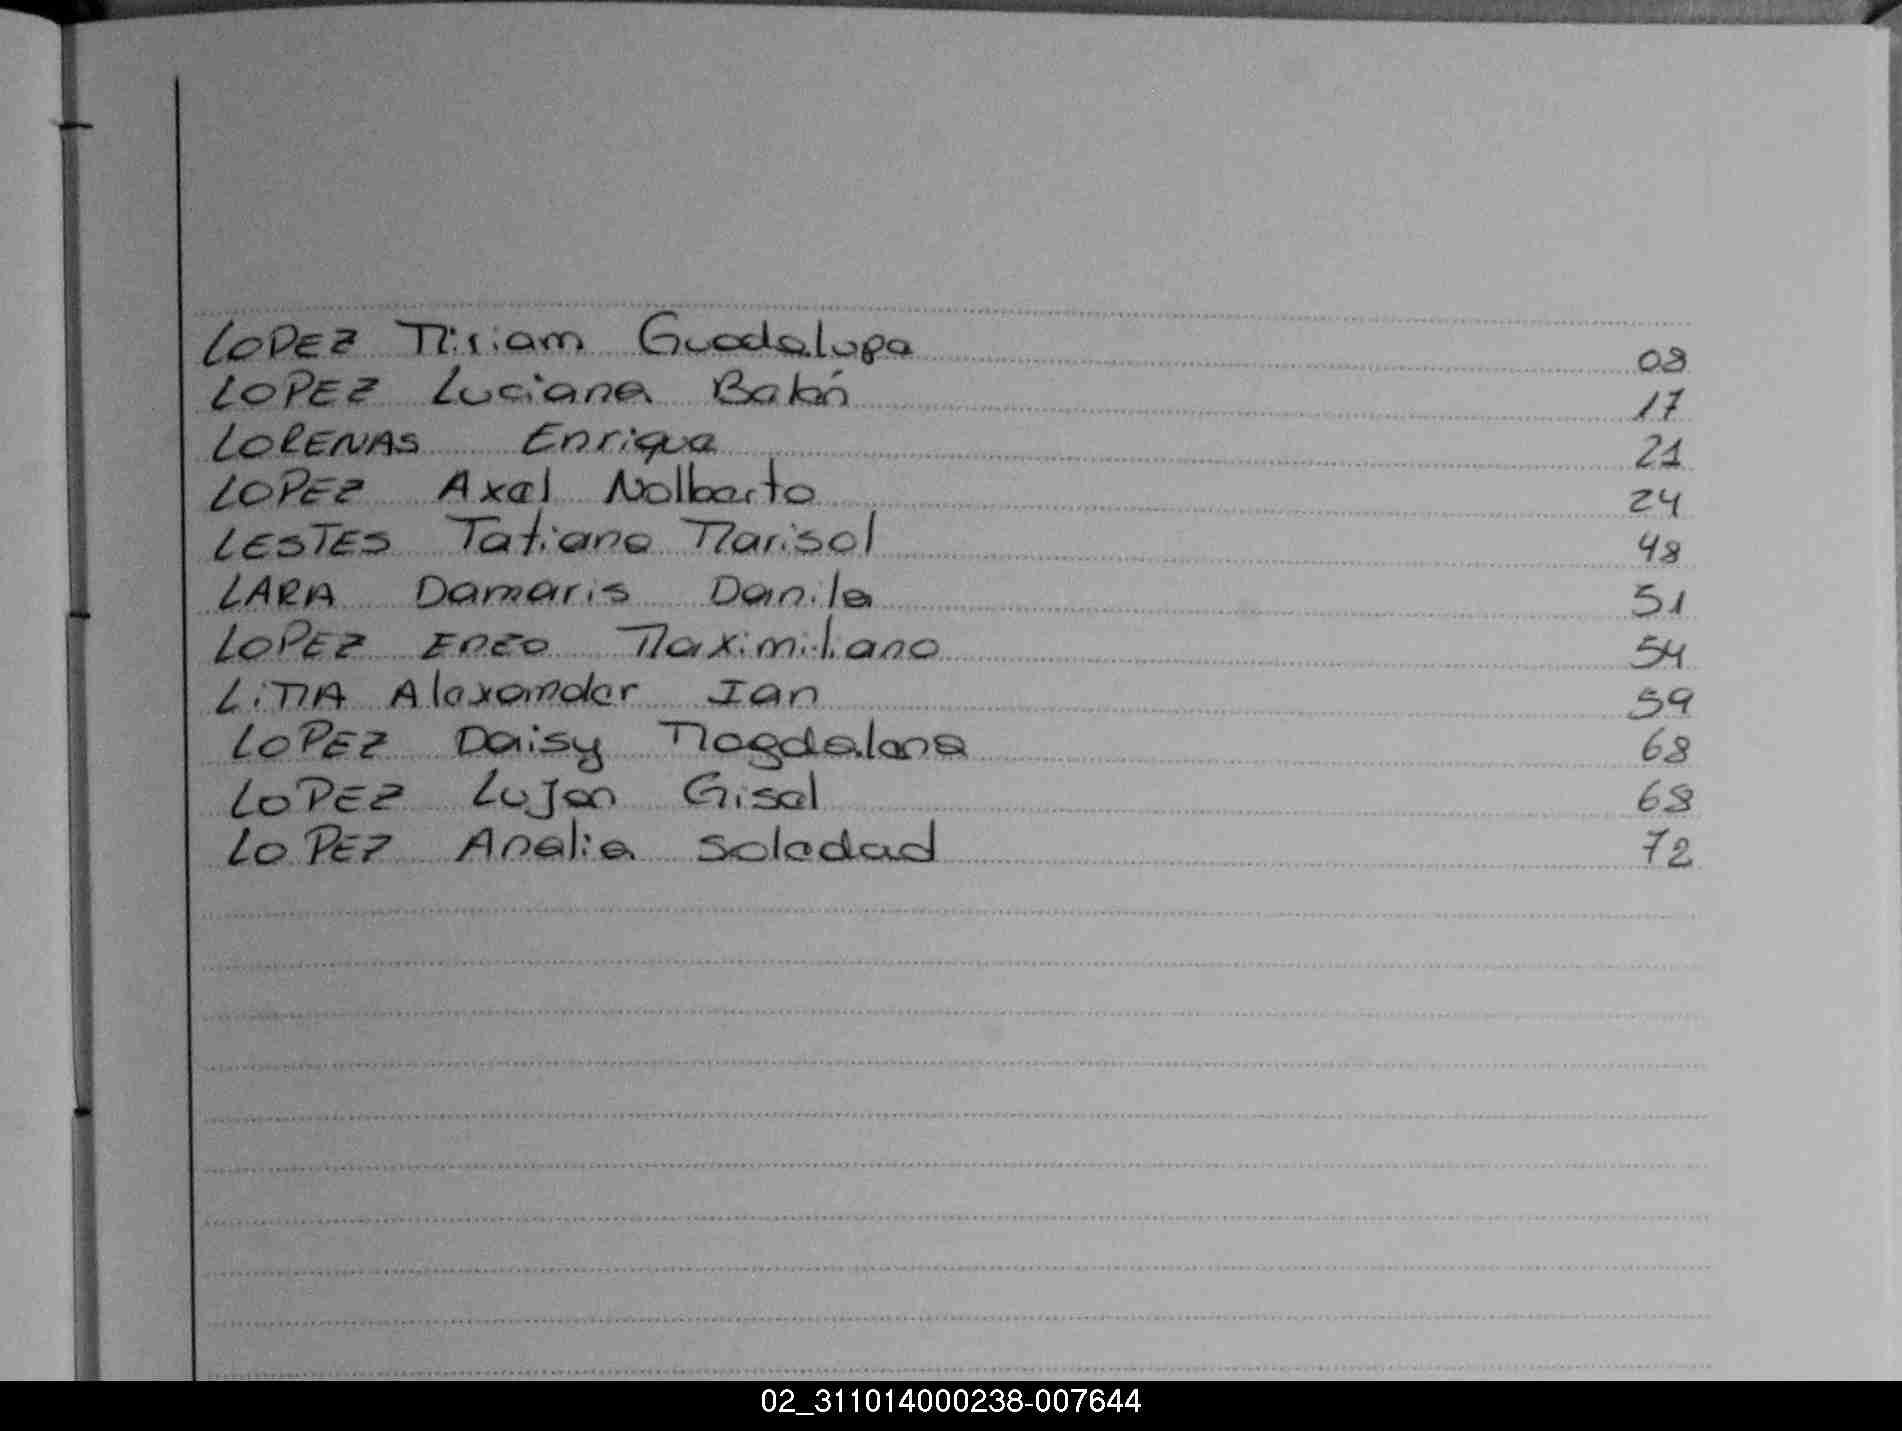 LOPEZ Miriam Guadalupe 08
LOPEZ Luciana Belén 17
LORENAS Enrique 21
LOPEZ Axel Nolberto 24
LESTES Tatiana Marisol 48
LARA Damaris Danila 51
LOPEZ Enzo Maximiliano 54
LiMA Alexander Ian 59
LOPEZ Daisy Magdalena 68
LOPEZ Lujan Gisel 68
LOPEZ Analia Soledad 72
02_311014000238-007644